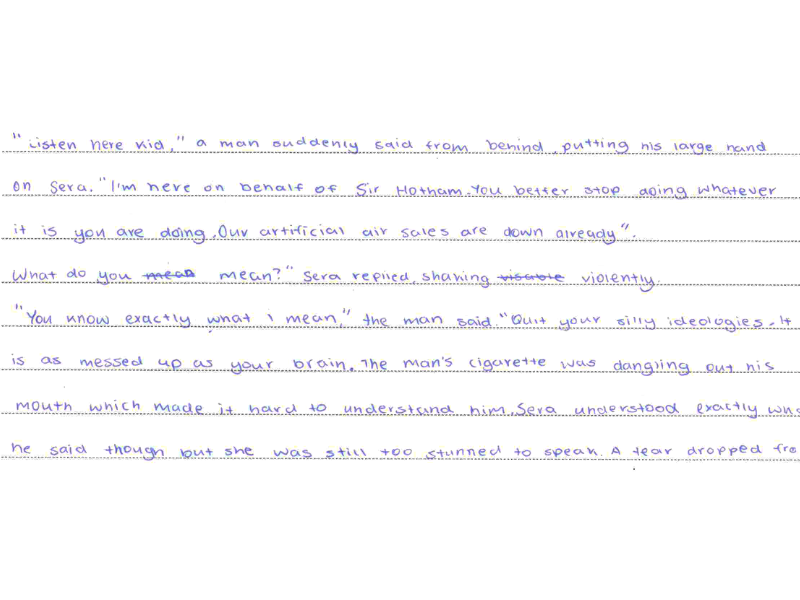 "Listen here kid," a man suddenly said from behind, putting his large hand
on Sera. "I'm here on behalf of Sir Hotham. You better stop doing whatever
it is you are doing. Our artificial air sales are down already".
What do you mean mean?" Sera replied, shaking visable violently.
"You know exactly what I mean," the man said. "Quit your silly ideologies. It
is as messed up as your brain. The man's cigarette was dangling out his
mouth which made it hard to understand him. Sera understood exactly wha
he said though but she was still too stunned to speak. A tear dropped fro